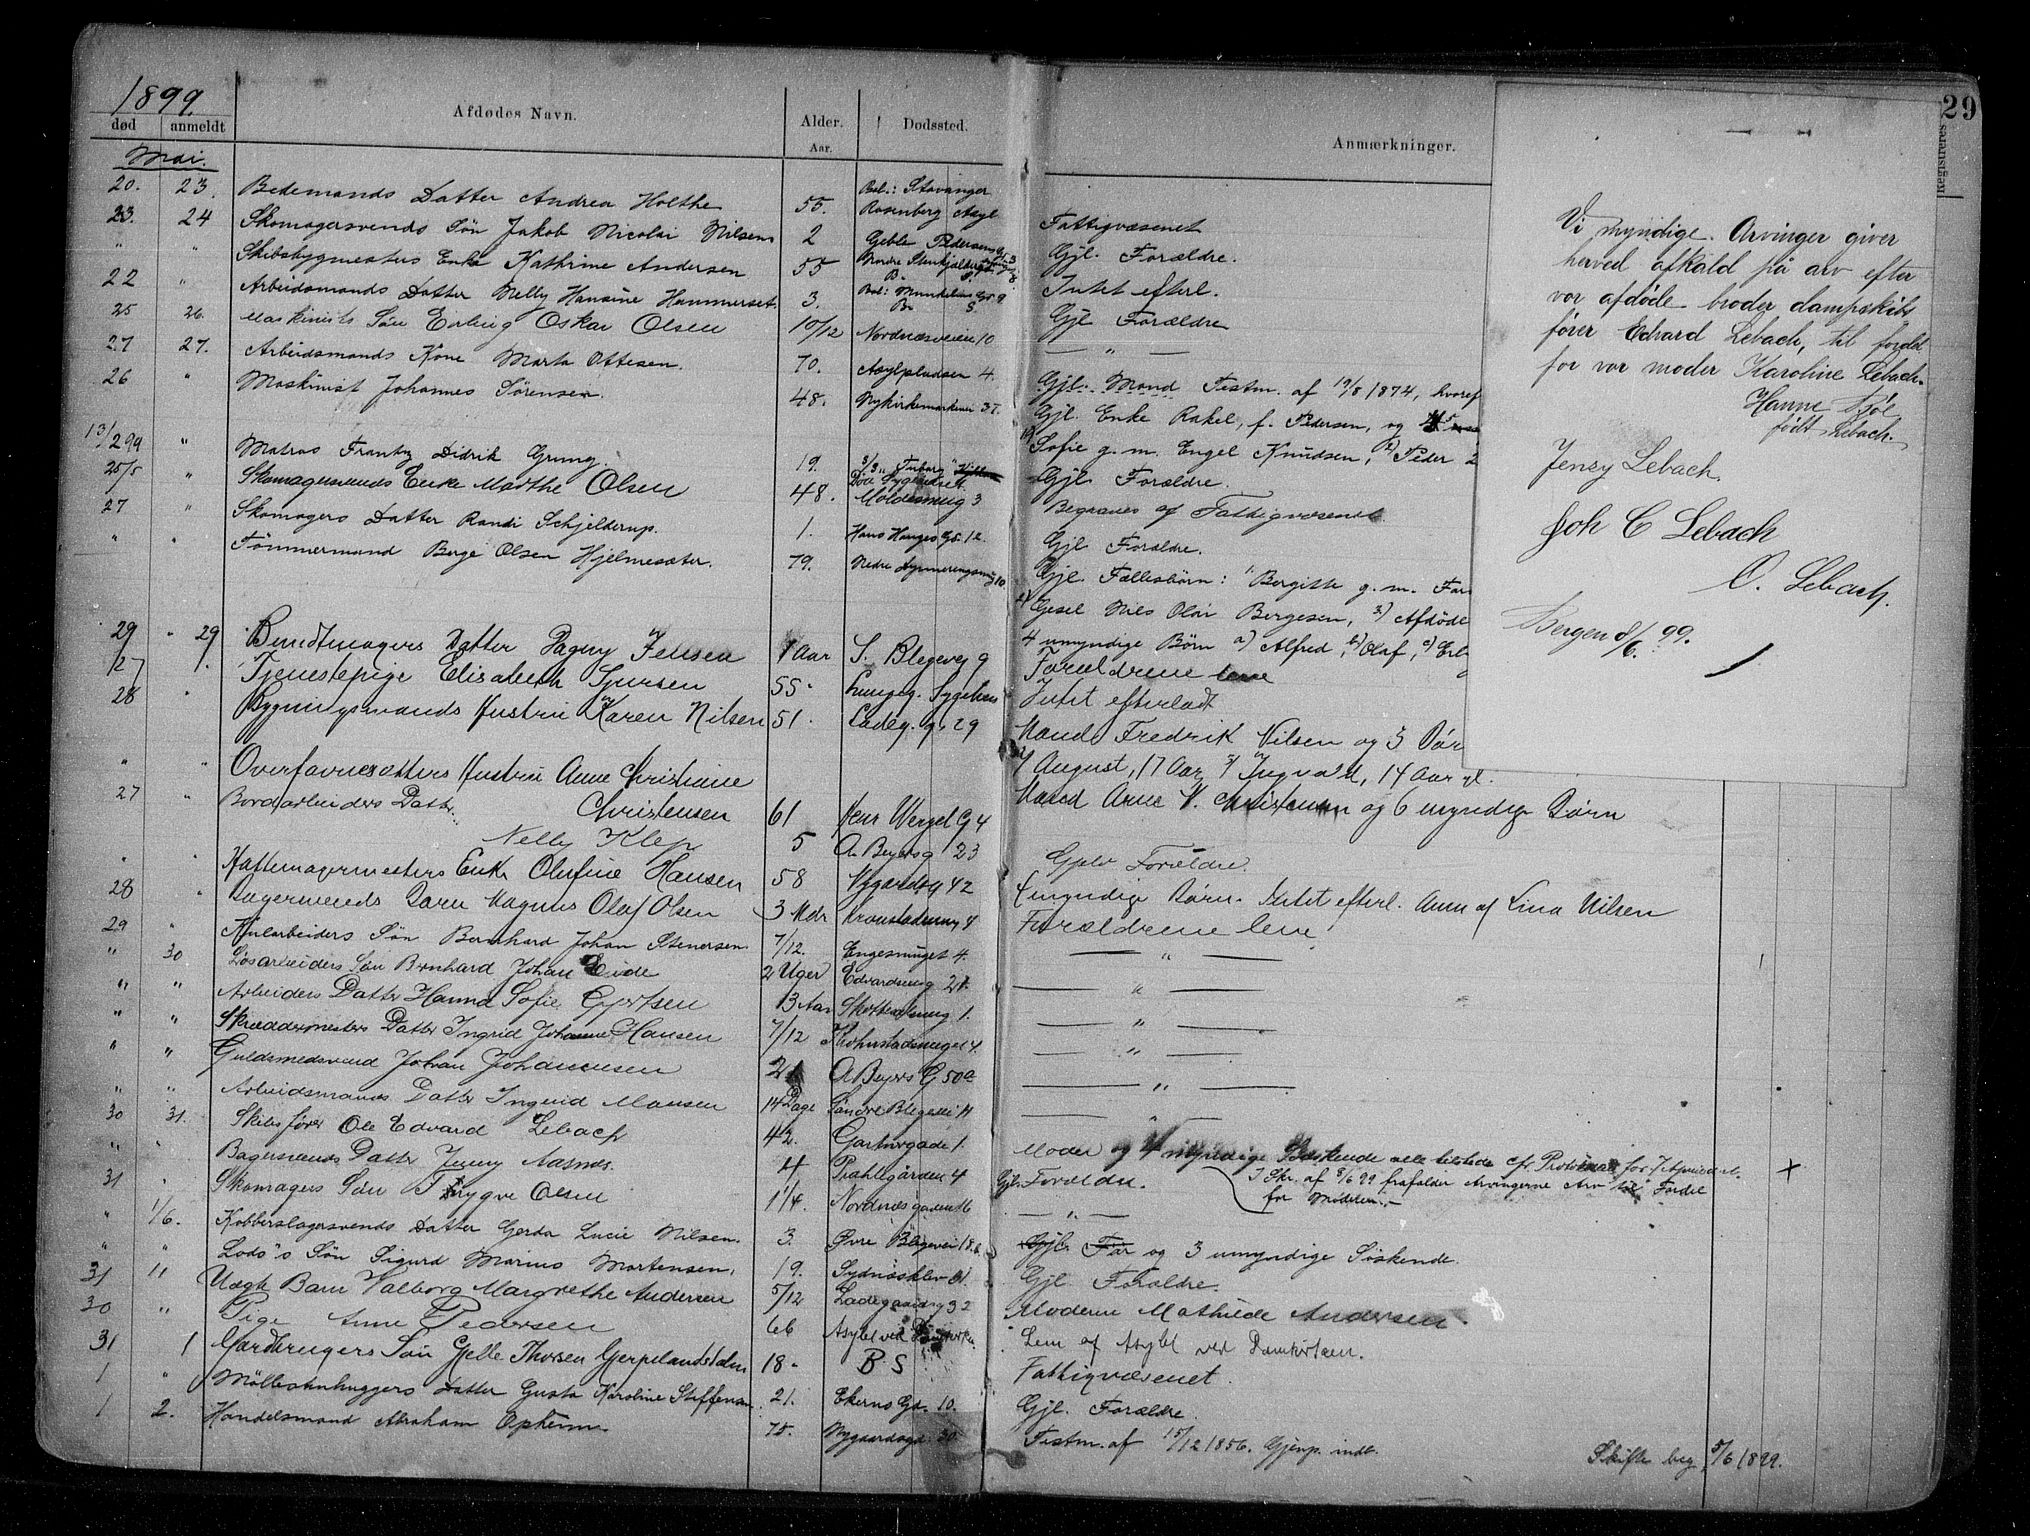 1899.
død anmeldt Afdødes Navn. Alder. Aar. Dødssted.
Mai.
20. 23. Bedemands Datter Andrea Holthe 55. Bol: Stavanger Rosenberg Asyl
23. 24 Skomagersvends Søn Jakob Nicolai Nilsen 2 Geble Pedersens
" " Skibsbygmesters Enke Kathrine Andersen 55
22 " Arbeidsmands Datter Nelly Hansine Hammerset. 3.
25 26. Maskinists Søn Erling Oskar Olsen 10/12 Nordnæsveien 10
27 27. Arbeidsmands Kone Marta Ottesen. 70. Asylpladsen 4.
26 " Maskinist Johannes Sørensen. 48. Nykirkemarkvei 37.
13/2 99 " Matros Frantz Didrik Grung. 19.
25/5 " Skomagersvends Enke Marthe Olsen 48. Moldesmug 3
27 " Skomagers Datter Randi Schjelderup. 1. Hans Hauges Gd. 12.
" " Tømmermand Berge Olsen Hjelmesæter. 79. Nedre
29 " 29 Bundtmagers Datter Dagny Jensen 1 Aar S. Blegevej 9
27 Tjenestepige Elisabeth Sjursen 55 Lungeg. Sygehus
28 " Bygningsmands Hustru Karen Nilsen 51. Ladeg. g. 29
" " Hustru Anne Christiane
Christensen 61 Henr Wergel G 4
27 " Bordarbeiders Datter
Nelly Klep 5 A Beyersg 23
" Hattemagermesters Enke Olufine Hansen 58 Nygårdsg 42
28 " Bagersvends Barn Magnus Olaf Olsen 3 Mdr
29 " Søn Bernhard Johan Stenersen 7/12. Engesmuget 4.
" 30 Løsarbeiders Søn Bernhard Johan Eide 2 Uger Edvardsmug 2
" " Arbeiders Datter Hanna Sofie Gjertsen 13 Aar
" " Skræddermesters Datter Ingrid Johanne Hansen 7/12 Krohnstadsmuget 4.
" " Guldsmedsvend Johan Johannesen 21 A Beyers G 50a
" " Arbeidsmands Datter Ingrid Monsen 14 Dage Søndre Blegevei 14
30 31. Skibsfører Ole Edvard Lebach 42. Gartnergade 1.
" " Bagersvends Datter Jenny Aasnes. 4 Prahlgården 4
31 " Skomagers Søn Trygve Olsen 1 1/4. Nordnæsgaden 16
" 1/6. Kobberslagersvends Datter Gerda Lucie Nilsen. 3. Øvre Blegevei 18
" " Lods's Søn Sigurd Marius Mortensen. 19. Sydnæsklev
31 " Uægte Barn Valborg Margrethe Andersen 5/12 Ladegaardsg 32
30 " Pige Anne Pedersen 66 Asylet ved Domkirken
31 1 Gardbrugers Søn Gjelle Thorsen Gjerpelandsdalen 18 B S
1 " Møllestenhuggers Datter Gusta Karoline Steffensen. 21. Ekerns Gd. 10.
1 2. Handelsmand Abraham Opheim 75. Nygaardsgd. 30.
29
Anmærkninger.
Registreres
Fattigvæsenet
Gjl. Forældre.
Intet efterl.
Gjl Forældre
— " —
Gjl. Mand Testm. af 19/8 1874, hvoref
Gjl. Enke Rakel, f. Pedersen, og
Sofie g. m. Engel Knudsen, 2) Peder
Gjl. Forældre.
Begraves af Fattigvæsenet.
Gjl. Forældre.
Gjl. Fællesbørn: 1 Bergitte g. m.
Gesel Nils Olai Bergesen, 3) Afdøde
4 umyndige Børn a) Alfred, b) Olaf, c)
Forældrene leve
Intet efterladt
Mand Fredrik Nilsen og 3 Bør
August, 17 Aar 3/ Ingvald, 14 Aar gl.
Mand Arne N. Christensen og 6 myndige Børn
Gjlv Forældre.
4 myndige Børn. Intet efterl. Anm af Lina Nilsen
Forældrene leve
— " —
— " —
— " —
— " —
— " —
— " —
Moder og 4 myndige Søskende alle tilstede cfr Protokol
I Skr. af 8/6 99 frafalder Arvingerne Arv til Fordel
for Moderen.-
Gjl. Forældre.
— " —
Gjl. Far og 3 umyndige Søskende.
Gjl. Forældre.
Moderen Mathilde Andersen
Lem af Asylet ved Domkirken.
Fattigvæsenet.
Gjl. Forældre.
Testm. af 15/12 1856. Gjenp. indt.
Skifte beg. 5/6 1899.
Vi myndige Arvinger giver
herved afkald på arv efter
vor afdøde broder dampskibs
fører Edvard Lebach, til fordel
for vor moder Karoline Lebach.
Hanne Bøe
født Lebach.
Jenzy Lebach.
Joh C Lebach
O. Lebach.
Bergen 8/6. 99.